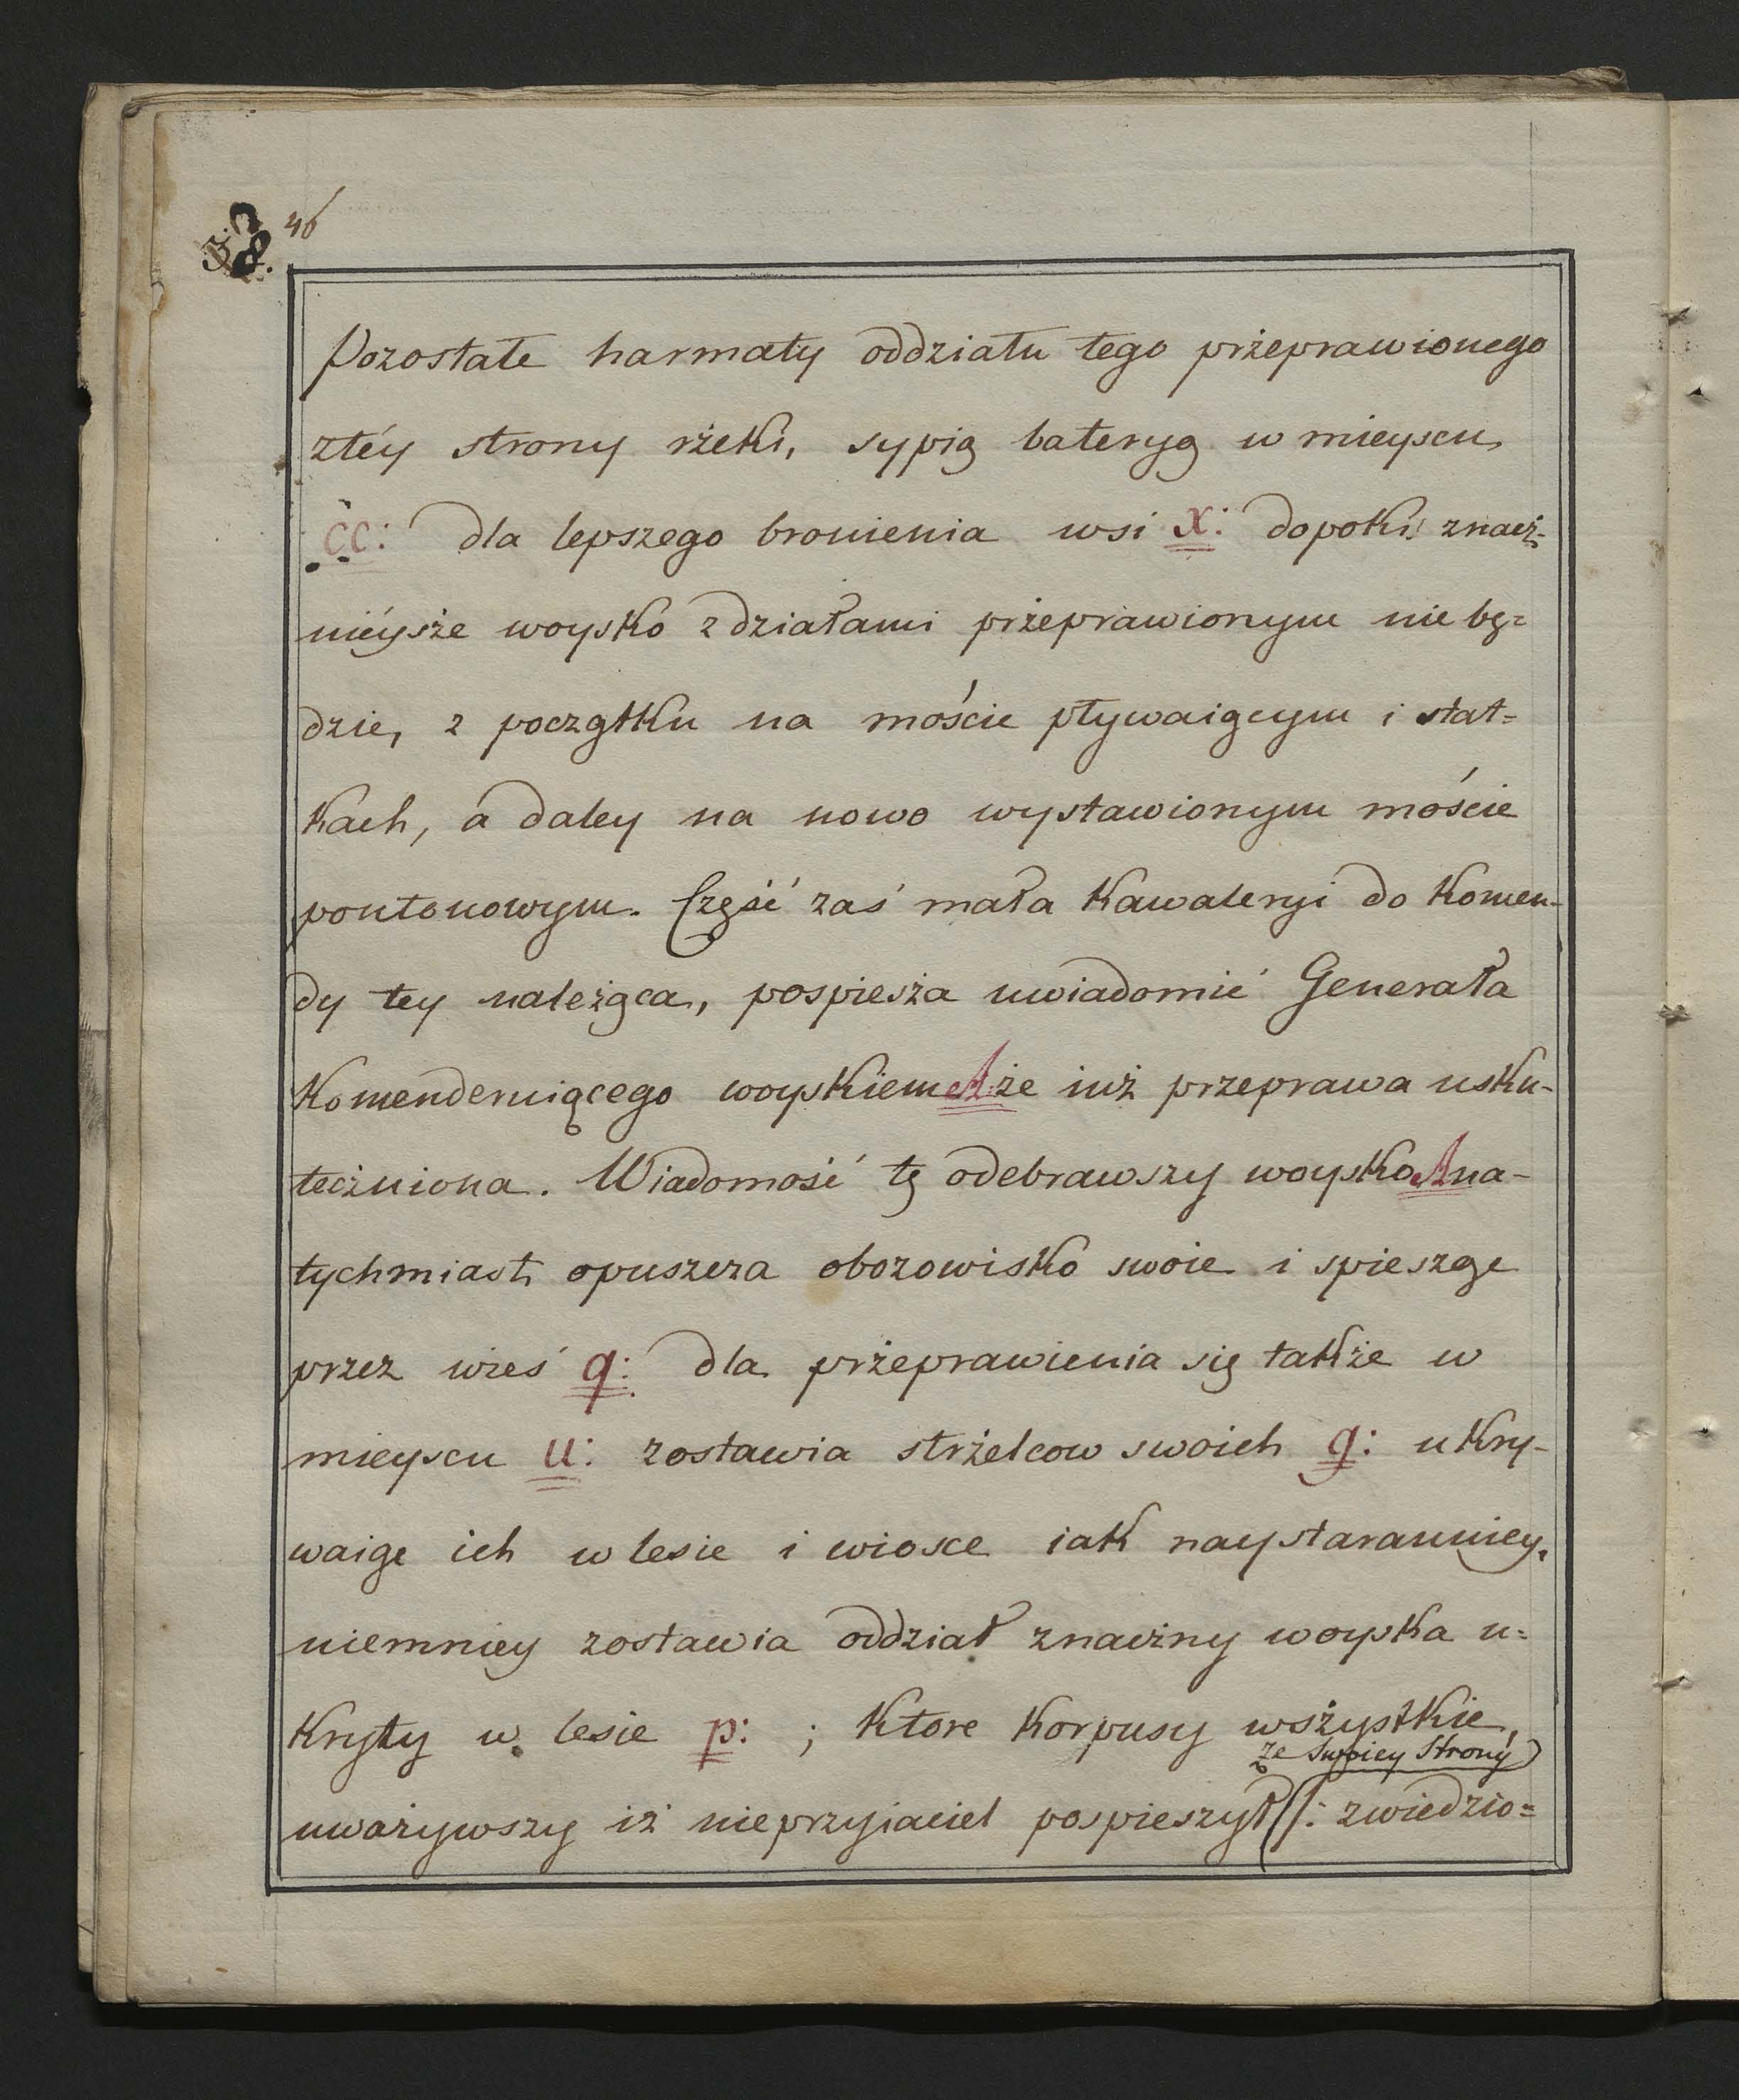 46
Pozostałe harmaty oddziału tego przeprawionego
ztéy strony rżeki, sypią bateryą w mieyscu
cc: dla lepszego bronienia wsi x: dopoki znacż-
niéysże woysko z działami przeprawionym nie bę=
dzie, z początku na moście pływaiącym i stat=
kach, á daley na nowo wystawionym moście
pontonowym. Część zaś mała Kawaleryi do Komen-
dy tey należąca, pospiesża uwiadomić Generała
Komenderuiącego woyskiem A: że iuż przeprawa usku-
tecżniona. Wiadomość tę odebrawszy woysko A na-
tychmiast opuszcza obozowisko swoie i spiesząc
przez wieś q: dla przeprawienia się także w
mieyscu u: zostawia strżelcow swoich q: ukry-
waiąc ich w lesie i wiosce iak naystaranniey,
niemniey zostawia oddział znacżny woyska u=
kryty w lesie p: ; ktore korpusy wsżystkie,
ze swoiey Strony
uważywszy iż nieprzyiaciel pospieszył /: zwiedzio=